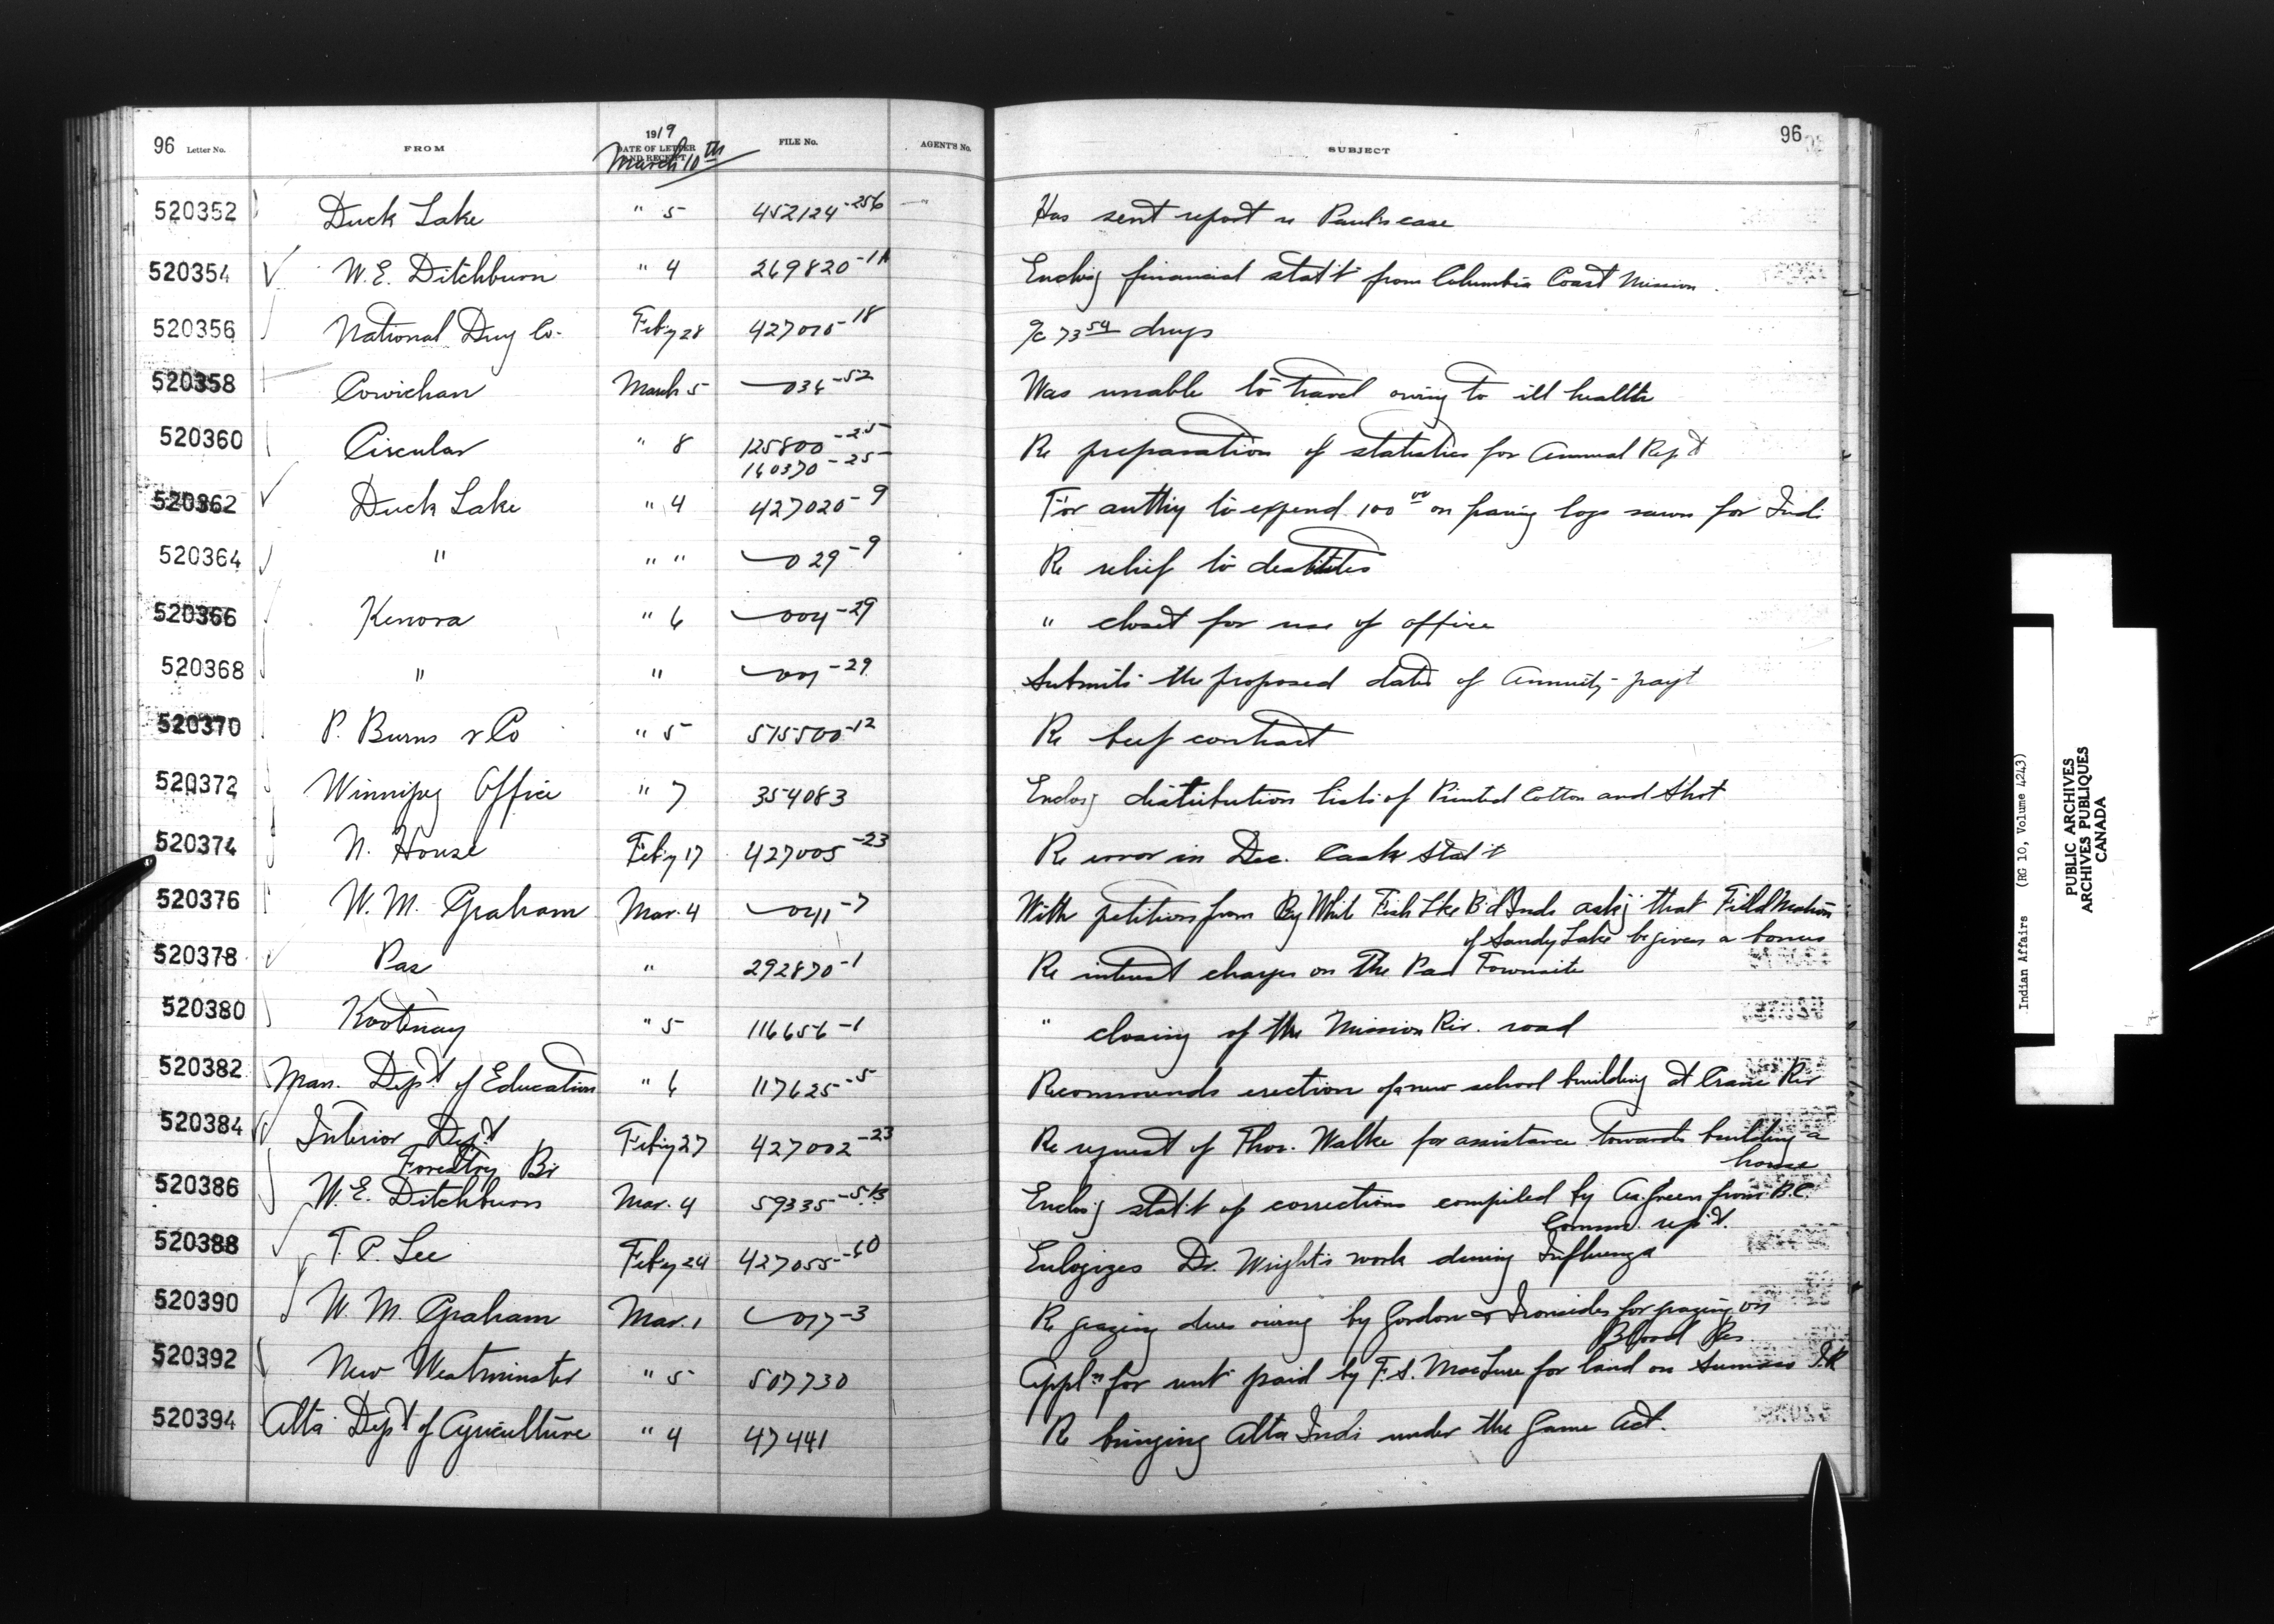 96 Letter No. FROM 1919 DATE OF LETTER AND RECEIPT FILE No. AGENT'S No. SUBJECT 96
March 10th
520352 Duck Lake " 5 452124-256 Has sent report re Paul's case
520354 W. E. Ditchburn " 4 269820-1A Enclos'g financial stat't from Columbia Coast Mission.
520356 National Drug Co. Feb'y 28 427010-18 a/c 73 54 drugs
520358 Cowichan March 5 036-52 Was unable to travel owing to ill health
520360 Circular " 8 125800-25 Re preparation of statistics for Annual Rep't
160370-25
520362 Duck Lake " 4 427020-9 For auth'y to expend 100 00 on having logs sawn for Inds
520364 " " " 029-9 Re relief to destitutes
520366 Kenora " 6 004-29 " closet for use of office
520368 " " 007-29 Submits the proposed dates of Annuity pay't
520370 P. Burns & Co " 5 515500-12 Re beef contract
520372 Winnipeg Office " 7 354083 Enclos'g distribution lists of Printed Cotton and Shot
520374 N. House Feb'y 17 427005-23 Re error in Dec. Cash Stat't
520376 W. M. Graham Mar. 4 041-7 With petition from Big White Fish Lke B'd Inds ask'g that Field Matron
of Sandy Lake be given a bonus
520378 Pas " 292870-1 Re interest charges on The Pas Townsite
520380 Kootenay " 5 116656-1 " closing of the Mission Riv. road
520382 Man. Dep't of Education " 6 117625-5 Recommends erection of a new school building at Crane Riv
520384 Interior Dep't Feb'y 27 427002-23 Re request of Thos. Walke for assistance towards building a
Forestry Br house
520386 W. E. Ditchburn Mar. 4 59335-5B Enclos'g stat't of corrections compiled by A. Green from B.C.
Comm. rep't.
520388 T. P. Lee Feb'y 24 427055-60 Eulogizes Dr. Wright's work during Influenza
520390 W. M. Graham Mar. 1 017-3 Re grazing dues owing by Gordon & Ironsides for grazing on
Blood Res.
520392 New Westminster " 5 507730 Appl'n for rent paid by F. S. MacLure for land on Sumas I.R
520394 Alta Dep't of Agriculture " 4 47441 Re bringing Alta Inds under the Game Act.
Indian Affairs (RG 10, Volume 4243)
PUBLIC ARCHIVES
ARCHIVES PUBLIQUES
CANADA